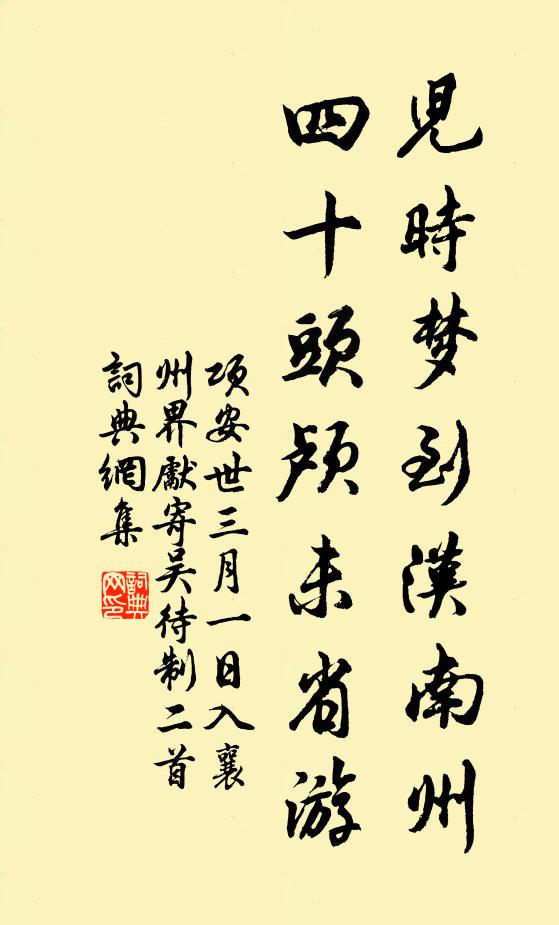 兒時梦到漢南州
四十頭顱未省游
項安世三月一日入襄
州界獻寄吴待制二首
詞典網集
詞典
网印